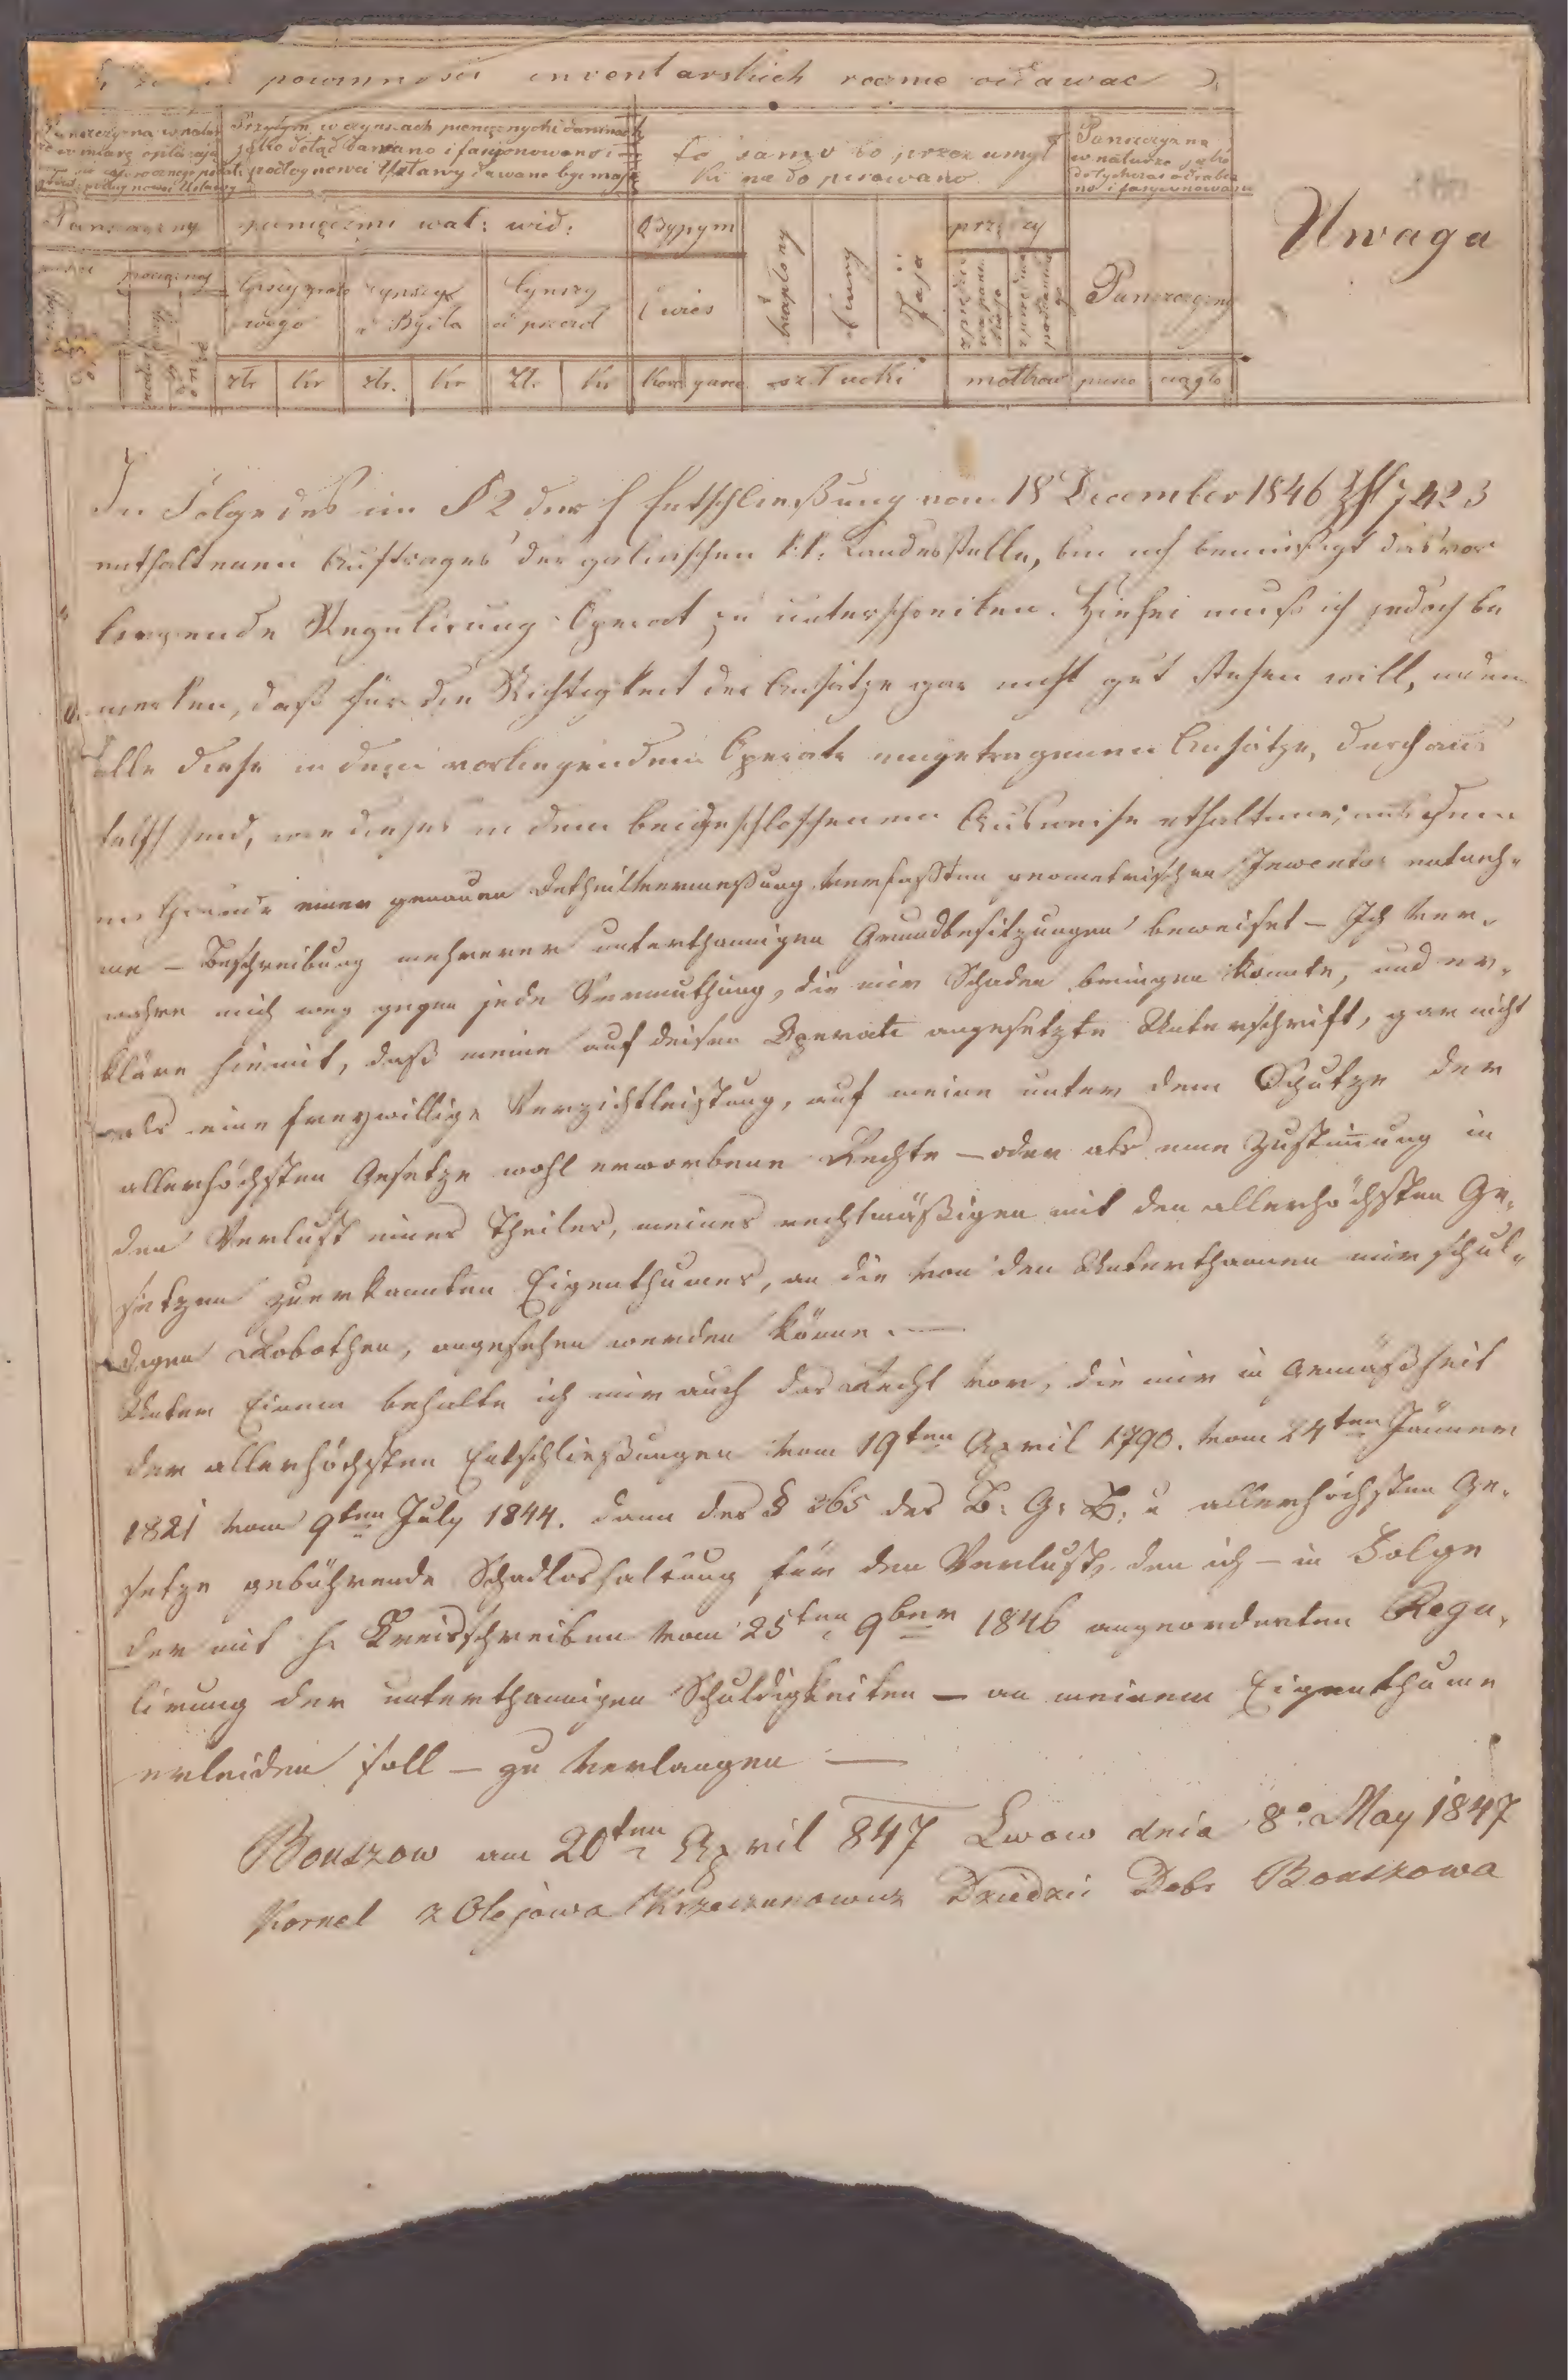 powinnosci inwentarskich rocznie oddawac
Przytym w czynszach pieniężnych i daninach
jako dotąd dawano i fasyonowano i
podług nowei Ustawy dawane być mają
to samo co przez umysł
Panszczyzna
w naturze jako
dotychczas odrabia
no i fasyonowano
Uwaga
Panszczyzny
pieniędzmi wal: wid:
Osypym
przędzy
pieszei
pociągnej
Czynszy grun
towego
czynszy
z Bydła
Czynszy
od przęd
Owies
kapłony
kury
Jaja
Panszczyzny
złr
kr
złr.
kr
Zł.
kr
kor
garn.
sztuki
motkow
pieno
ciągło
In Folge des im § 2 der h Entschließung vom 18 December 1846 Zhl 7423
enthaltenen Auftrages der galizischen k: k: Landesstelle, bin ich bemüßigt das vor
liegende Regulirung Operat zu unterschreiben. Hiebei muß ich jedoch be
merken, daß für die Richtigkeit der Ansätze gar nicht gut stehen will, indem
alle diese in dem vorliegenden Operate eingetragenen Ansätze, durchaus
falsch sind, wie dieses in dem beigeschlossenen Ausweise enthaltene, aus dem
im Grunde einer genauen Detheilvermeßung verfaßten geometrischen Inventar entneh-
me – Beschreibung mehrerer unterthannigen Grundbesitzungen beweiset – Ich ver-
wahre mich gegen jede Vermuthung, die mir Schaden bringen konnte, und er-
kläre hiemit, daß meine auf deisen Operate angesetzte Unterschrift, gar nicht
als eine freywillige Verzichtleistung, auf meine unter dem Schutze der
allerhöchsten Gesetze wohl erworbene Rechte – oder als eine Zustimung in
den Verlust eines Theiles, meines rechtmäßigen mit den allerhöchsten Ge-
setzen zuerkannten Eigenthumes, an die von den Unterthannen mir schul-
digen Robothen, angesehen werden könne. —
Unter Einem behalte ich mir auch das Recht vor, die mir in Gemäßheit
der allerhöchsten Entschließungen vom 19ten April 1790. vom 24ten Jänner
1821 vom 9ten July 1844. dann des § 365 des B: G: B: u allerhöchsten Ge-
setze gebührende Schadloshaltung für den Verlust, den ich – in Folge
der mit h. Kreisschreiben vom 25ten 9ber 1846 angeordneten Regu-
lirung der unterthannigen Schuldigkeiten – an meinem Eigenthume
erleiden soll – zu verlangen —
Bouszow am 20ten April 847 Lwow dnia 8o May 1847
Kornel z Olejowa Krzeczunowicz Dziedzic Dobr Bouszowa